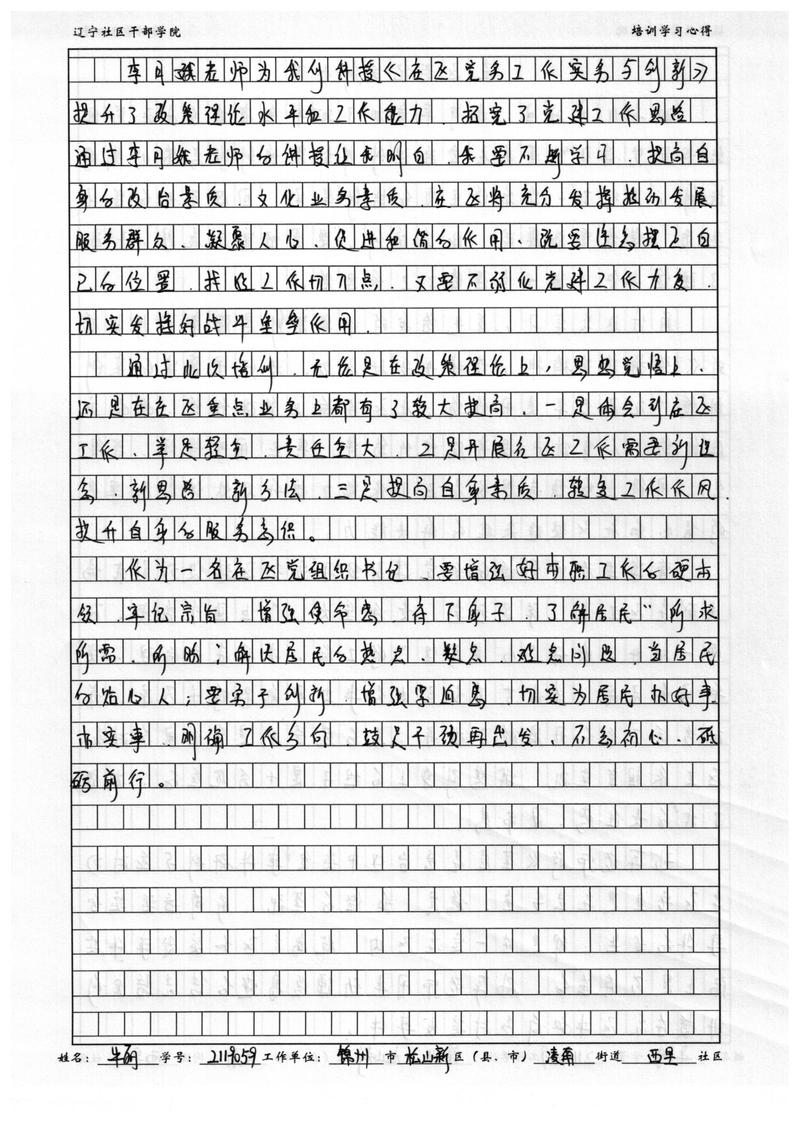 辽宁社区干部学院 培训学习心得
李月娥老师为我们讲授《社区党务工作实务与创新》
提升了政策理论水平和工作能力，拓宽了党建工作思路。
通过李月娥老师的讲授让我明白，我要不断学习，提高自
身的政治素质、文化业务素质，在区将充分发挥推动发展
服务群众、凝聚人心、促进和谐的作用，既要准确摆正自
己的位置，找准工作切入点，又要不弱化党建工作力度，
切实发挥好战斗堡垒作用。
通过此次培训，无论是在政策理论上，思想觉悟上，
还是在社区重点业务上都有了较大提高，一是体会到社区
工作，举足轻重，责任重大，二是开展社区工作需要新理
念，新思路，新方法，三是提高自身素质，转变工作作风，
提升自身的服务意识。
作为一名社区党组织书记，要增强好本职工作的硬本
领，牢记宗旨，增强使命感，夺下身子，了解居民“所求
所需、所盼；解决居民的热点、疑点、难点问题，当居民
的贴心人；要勇于创新，增强紧迫感，切实为居民办好事
办实事，明确工作方向，鼓足干劲再出发，不忘初心、砥
砺前行。
姓名：牛丽 学号：2119059 工作单位：锦州 市 松山新 区（县、市） 凌南 街道 西里 社区